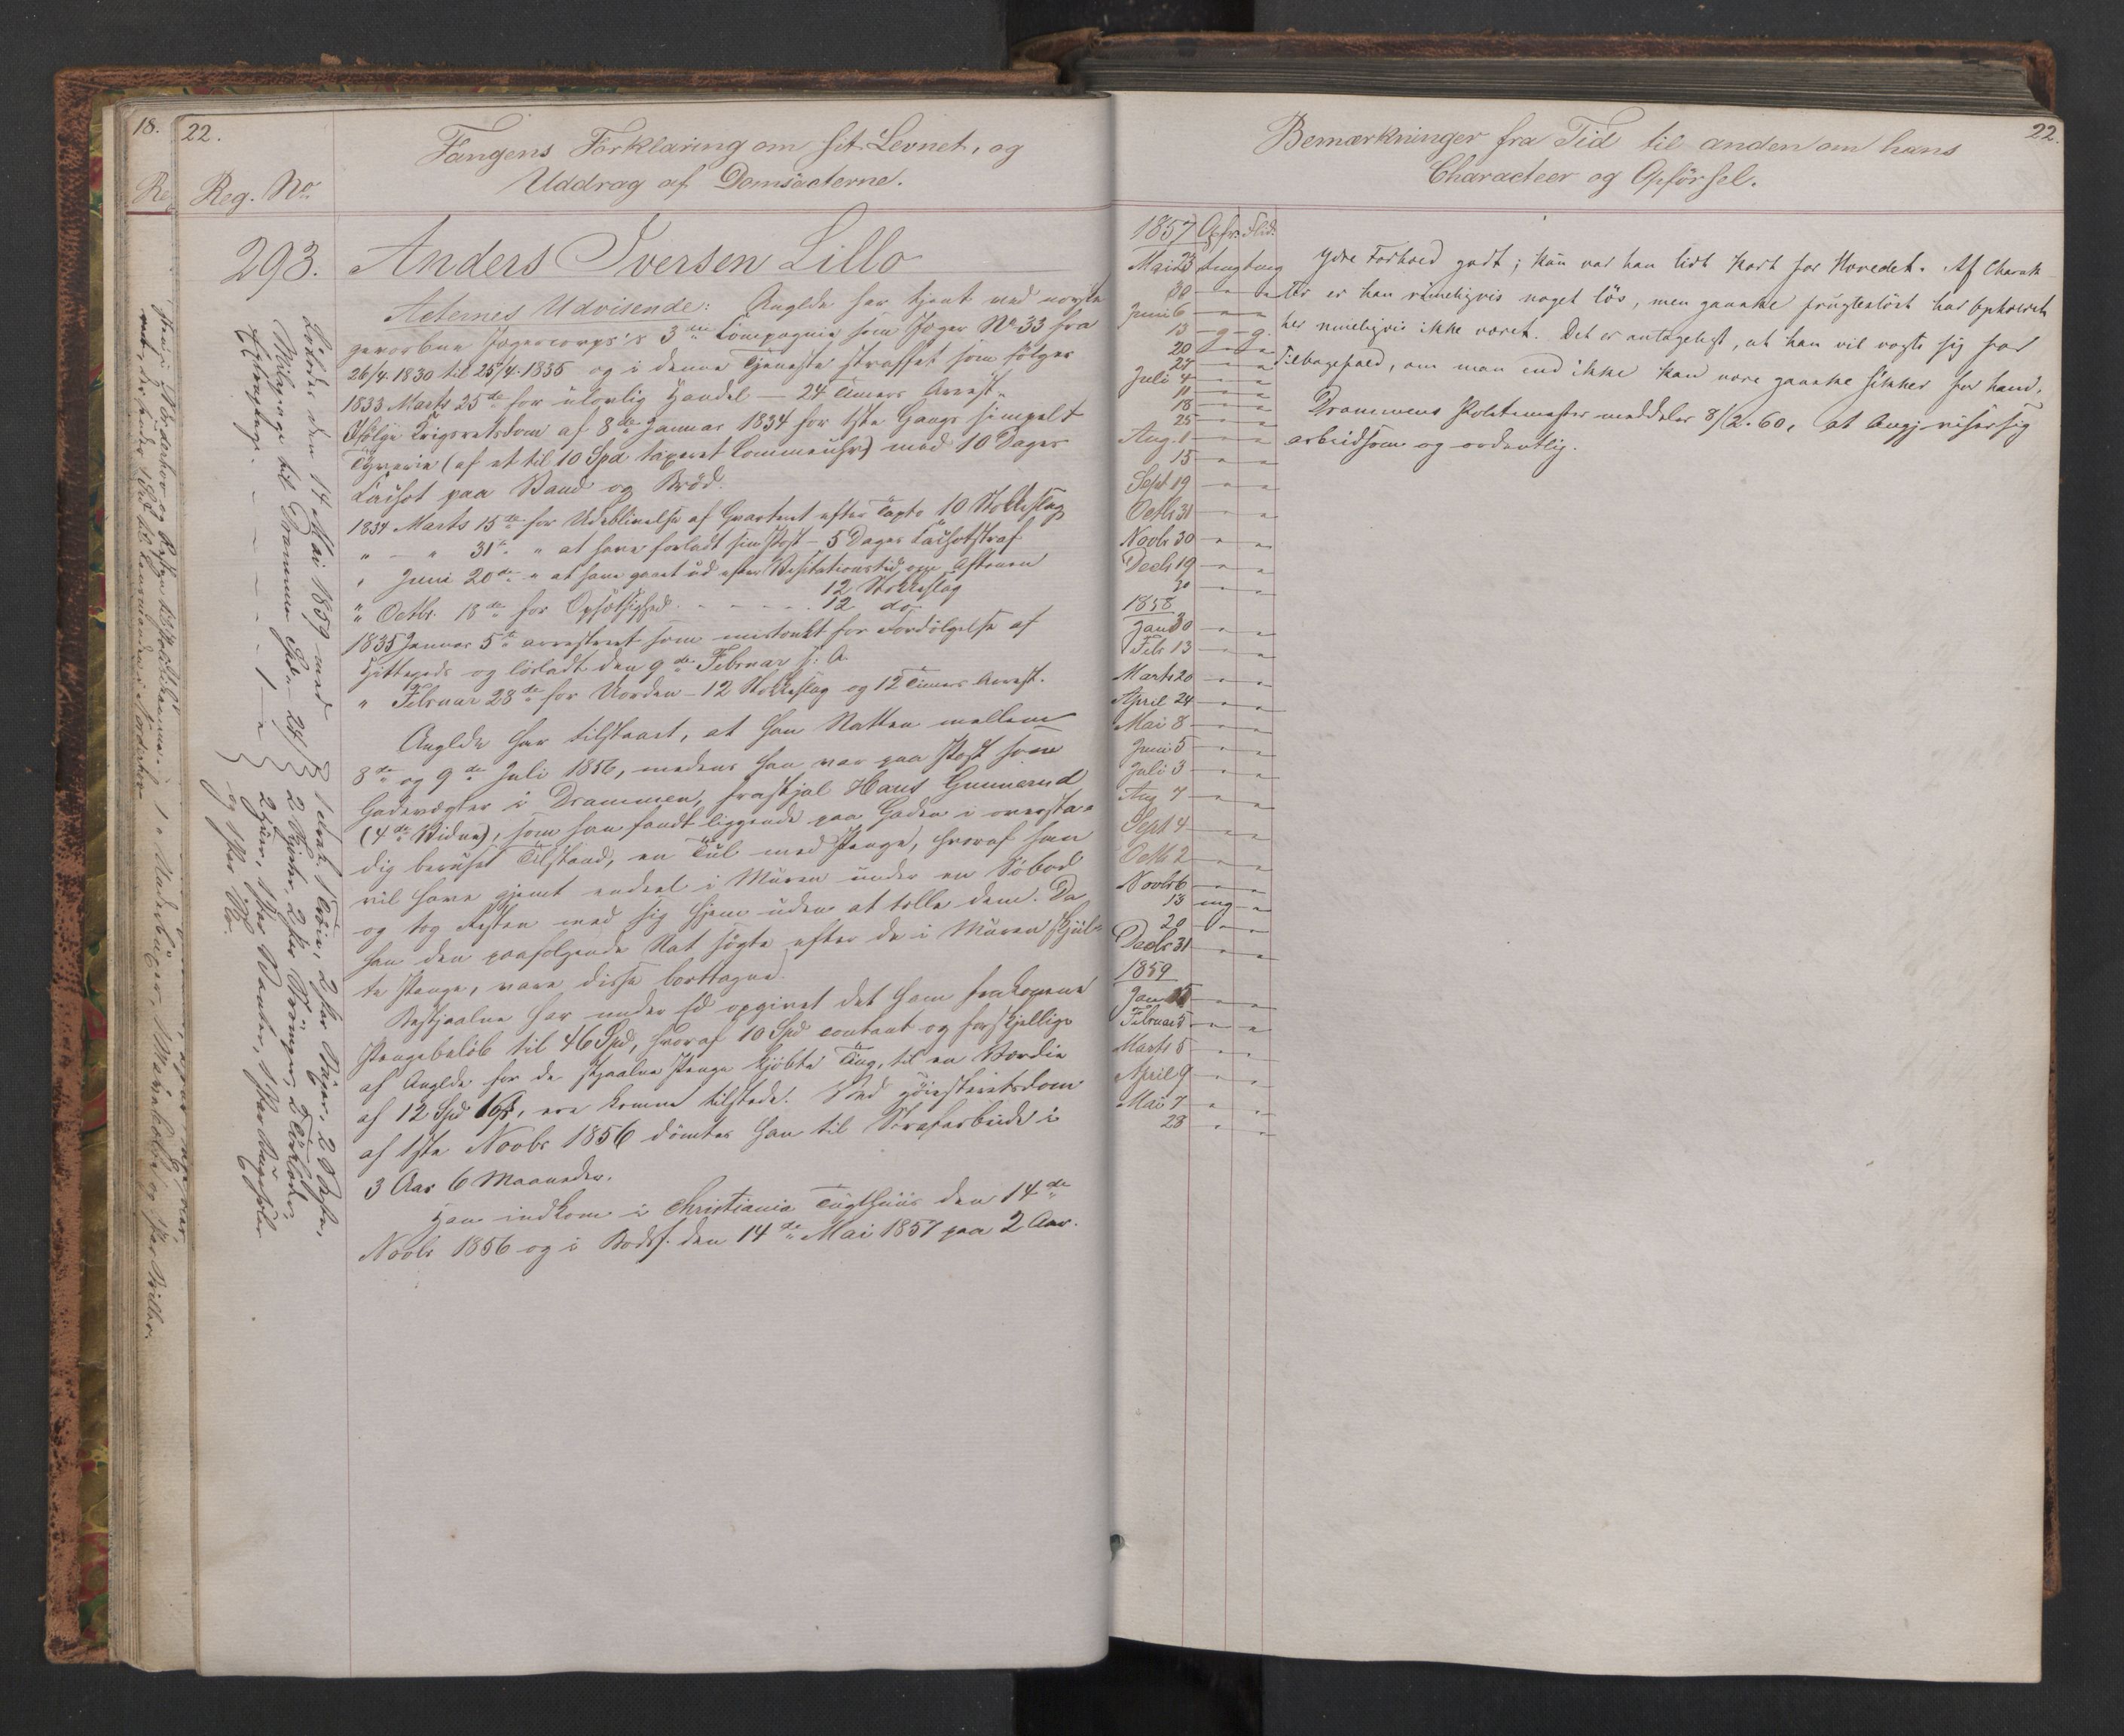 18.
22.
Fangens Forklaring om sit Levnet, og
Uddrag af Domsacterne.
Reg. No
293.
Anders Iversen Lillo
Acternes Udvisende: Anglde har tjent ved norske
gevorbne Jægercorps's 3die Compagnie som Jæger No 33 fra
26/4 1830 til 25/4 1835 og i denne Tjeneste straffet som følger
1833 Marts 25de for ulovlig Handel - 24 Timers Arrest.
Ifølge Krigsretsdom af 8de Januar 1834 for 1ste Gangs simpelt
Tyverie (af et til 10 Spd taxeret Lommeuhr) med 10 Dages
Cachot paa Vand og Brød.
1834 Marts 15de for Udeblivelse af Qvarteret efter Tapto 10 Stokkeslag
" - " 31te " at have forladt sin Post - 5 Dages Cachotstraf
" Juni 20de " at have gaaet ud efter Visitationstid om Aftenen
12 Stokkeslag
" Octbr. 18de for Opsætsighed - - - - 12 do
1835 Januar 5te arresteret som mistænkt for Fordølgelse af
Hittegods og løsladt den 9de Februar s: A.
" Februar 28de for Uorden - 12 Stokkeslag og 12 Timers Arrest.
Anglde har tilstaaet, at han Natten mellem
8de og 9de Juli 1856, medens han var paa Post som
Gadevægter i Drammen, frastjal Hans Gunnerud
(4de Vidne), som han fandt liggende paa Gaden i overstæ-
dig beruset Tilstand, en Tul med Penge, hvoraf han
vil have gjemt endeel i Muren under en Søbod
og tog Resten med sig hjem uden at tælle dem. Da
han den paafølgende Nat søgte efter de i Muren skjul-
te Penge, vare disse borttagne.
Bestjaalne har under Ed opgivet det ham frakomne
Pengebeløb til 46 Spd, hvoraf 10 Spd contant og forskjellige
af Anglde for de stjaalne Penge kjøbte Ting, til en Værdie
af 12 Spd, ere komne tilstede. Ved Høiesteretsdom
af 1ste Novbr 1856 dømtes han til Strafarbeide i
3 Aar 6 Maaneder.
Han indkom i Christiania Tugthuus den 14de
Novbr 1856 og i Bodsf. den 14de Mai 1857 paa 2 Aar.
Løslodes den 14 Mai 1859 med
Milepenge til Drammen
Extratage - - - - 1 -
1 Trøie, 2 Par Buxer, 2 Veste,
2 Skjorter, 2 Par Strømper, 2 Tørklæder,
2 Huer, 1 Par Vanter, 1 Par Buxeseler
og 1 Par Sko.
22.
Bemærkninger fra Tid til anden om hans
Characteer og Opførsel.
1857 Opfr. Flid.
Mai 23 tmg tmg
30 " "
Juni 6 " "
13 g g.
20 " "
27 " "
Juli 4 " "
11 " "
18 " "
25 " "
Aug. 1 " "
15 " "
Sept 19 " "
Octb 31 " "
Novb 30 " "
Decb 19 " "
30 " "
1858
Jan 30 " "
Feb 13 " "
Marts 20 " "
April 24 " "
Mai 8 " "
Juni 5 " "
Juli 3 " "
Aug 7 " "
Sept 4 " "
Octb 2 " "
Novbr 6 " "
13 mg "
20 " "
Decbr 31 " "
1859
Jan 15 " "
Februar 5 " "
Marts 5 " "
April 9 " "
Mai 7 " "
28 " "
Ydre Forhold godt; kun var han lidt kort for Hovedet. Af Charak
ter er han rimeligvis noget løs, men ganske frugtesløst har Opholdet
her rimeligvis ikke været. Det er antageligt, at han vil vogte sig for
Tilbagefald, om man end ikke kan være ganske sikker for ham.
Drammens Politimester meddeler 8/2. 60, at Angj. viser sig
arbeidsom og ordentlig.